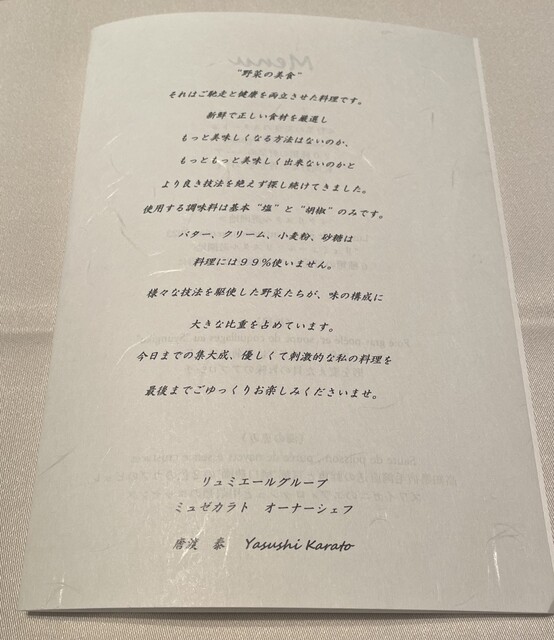 "野菜の美食"
それはご馳走と健康を両立させた料理です。
新鮮で正しい食材を厳選し
もっと美味しくなる方法はないのか、
もっともっと美味しく出来ないのかと
より良き技法を絶えず探し続けてきました。
使用する調味料は基本"塩"と"胡椒"のみです。
バター、クリーム、小麦粉、砂糖は
料理には99%使いません。
様々な技法を駆使した野菜たちが、味の構成に
大きな比重を占めています。
今日までの集大成、優しくて刺激的な私の料理を
最後までごゆっくりお楽しみくださいませ。
リュミエールグループ
ミュゼカラト オーナーシェフ
唐渡 泰 Yasushi Karato